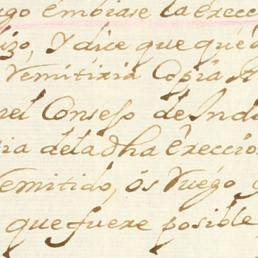 go embiase la execc
izo, Y dice que qued
Remitiria Copia A
nel Consejo de Ind
ia dela dha execcion
emitido, os Ruego
que fuere posible